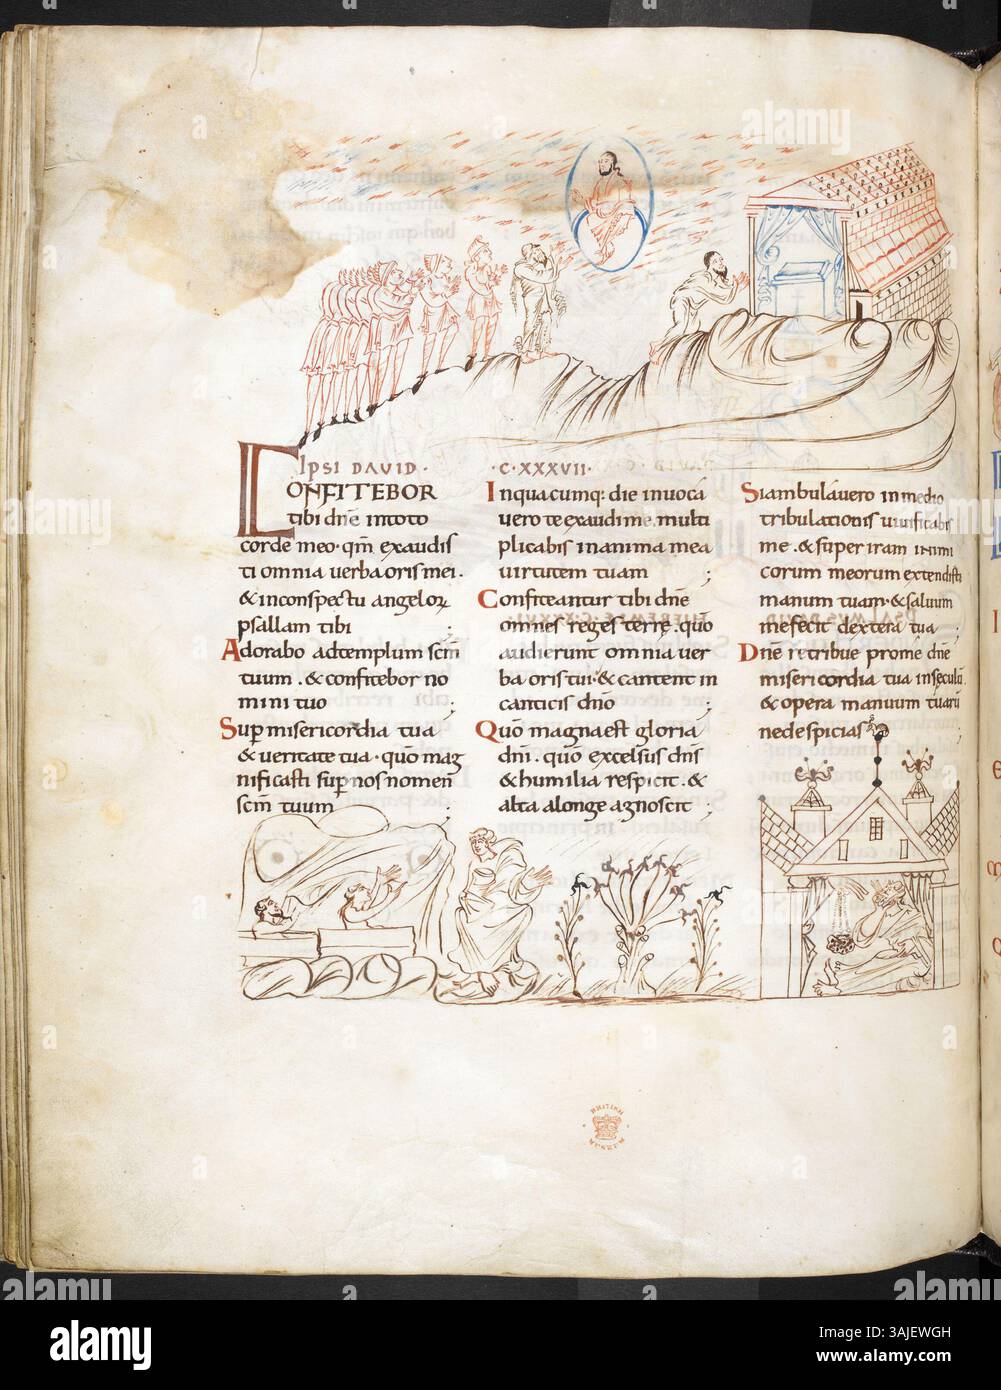 IPSI DAVID · C·XXXVII·
CONFITEBOR
tibi dn̄e intoto
corde meo · qm̄ exaudis
ti omnia verba oris mei ·
& inconspectu angeloꝝ
psallam tibi ;
Adorabo adtemplum scm̄
tuum · & confitebor no
mini tuo ;
Sup misericordia tua
& veritate tua · quo mag
nificasti sup nos nomen
scm̄ tuum ;
Inquacumq: die invoca
vero te exaudi me · multi
plicabis inanima mea
virtutem tuam ;
Confiteantur tibi dn̄e
omnes reges terrę · quo
audierunt omnia ver
ba oris tui · & cantent in
canticis dn̄o ;
Quo magna est gloria
dn̄i · quo excelsus dn̄s
& humilia respicit · &
alta alonge agnoscit ;
Siambulavero inmedio
tribulationis vivificabis
me · & super iram inimi
corum meorum extendisti
manum tuam · & salvum
mefecit dextera tua ;
Dn̄e retribue prome dn̄e
misericordia tua insecula
& opera manuum tuarū
nedespicias
BRITISH
MUSEUM
alamy
Image ID: 3AJEWGH
www.alamy.com